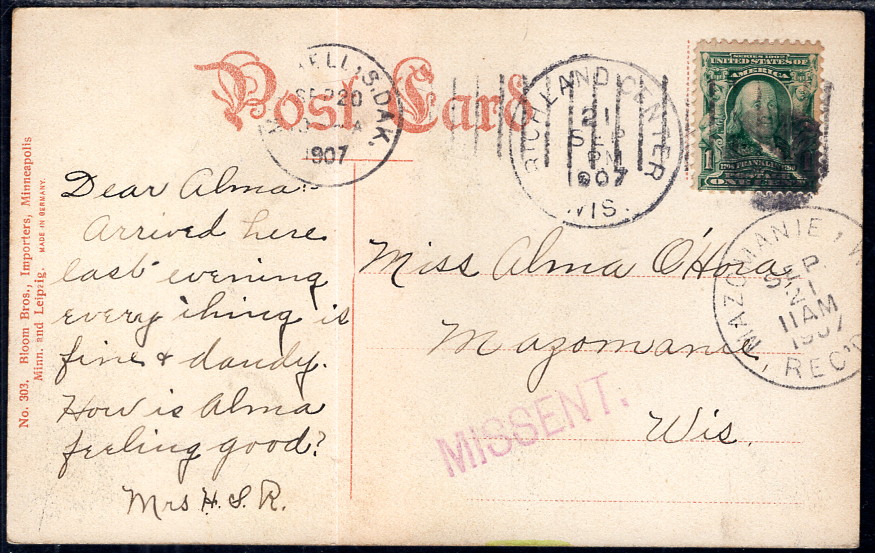 Post Card
ELL, S. DAK.
SEP 20
A
1907
RICHLAND CENTER
21
SEP
PM
907
WIS.
SERIES 1902
UNITED STATES OF
AMERICA
FRANKLIN
MAZOMANIE, W
SEP
11 AM
1907
REC'D
Dear Alma:-
Arrived here
last evening
every thing is
fine & dandy.
How is Alma
feeling good?
Mrs H. S. R.
Miss Alma O'Hora
Mazomanie
Wis.
MISSENT.
No. 303, Bloom Bros., Importers, Minneapolis
Minn. and Leipzig. MADE IN GERMANY.